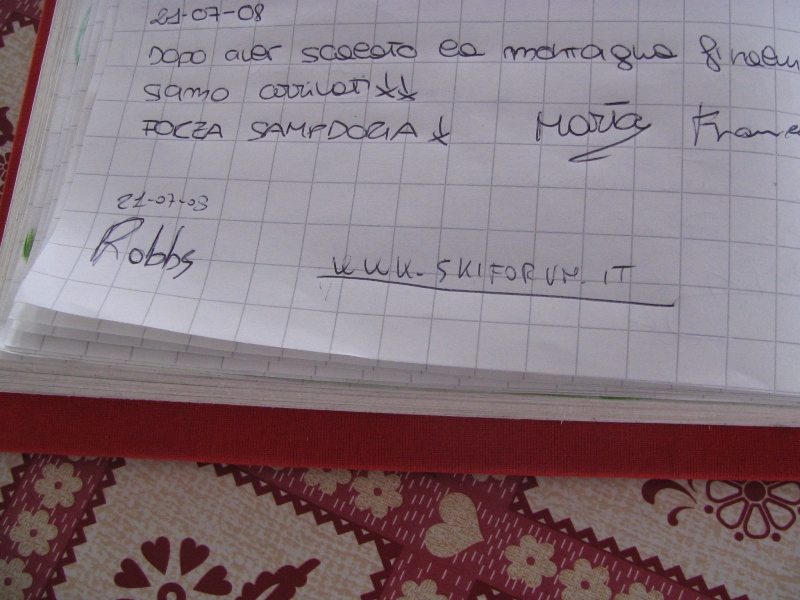 21-07-08
Dopo aver scalato la montagna
siamo arrivati!!
FORZA SAMPDORIA! Mattia
21-07-08
Robbs
WWW.SKIFORUM.IT